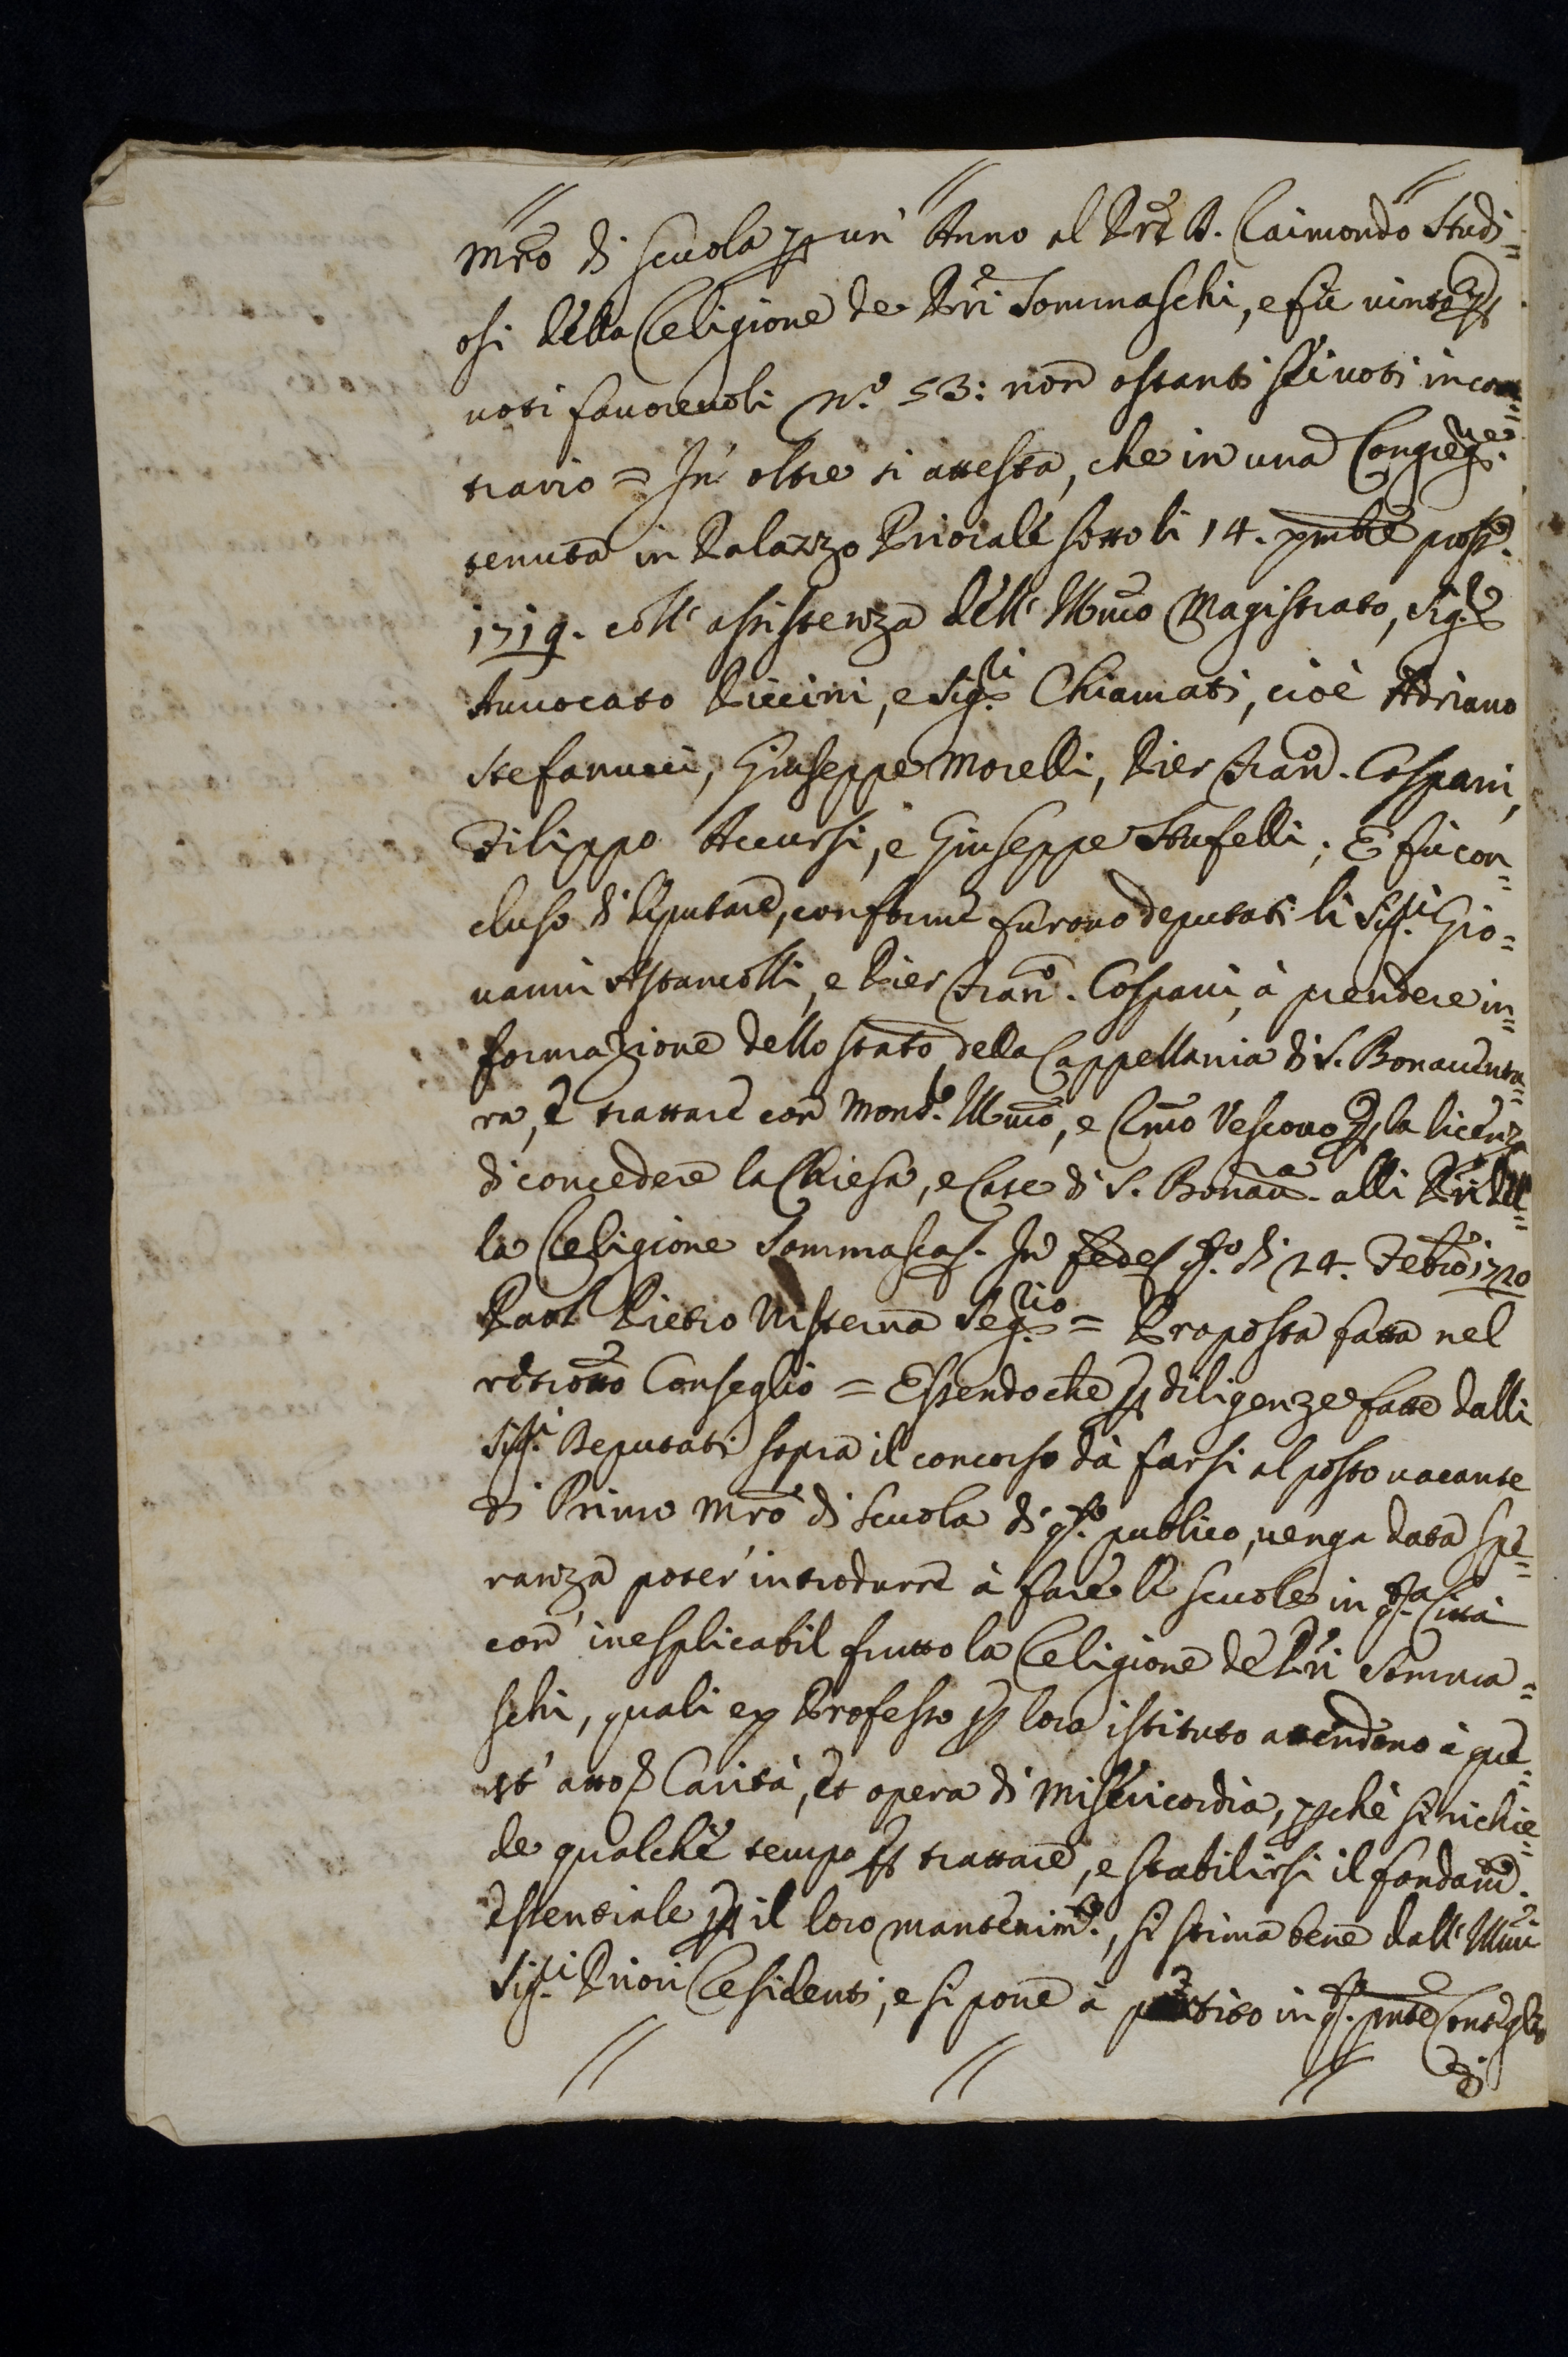 Mrõ di Scuola ꝑ un' Anno al Prẽ D. Raimondo Studi=
osi della Religione de PP̃ri Sommaschi, e fù vinto ꝑ
voti favorevoli n.º 53: non ostanti sei voti in con=
trario = In' oltre si attesta, che in una Congreg.ne
tenuta in Palazzo Priorale sotto li 14. xmbrẽ pross.º
1719. coll' assistenza dell' Illm̃o Magistrato, Sig.r
Avvocato Piccini, e Sig.ri Chiamati, cioè Adriano
Stefanucci, Giuseppe Morelli, Pier Fran.º Cospani,
Filippo Accursi, e Giuseppe Stufelli; E fù con=
cluso di deputare, conforme furono deputati li Sig.ri Gio=
vanni Astancolli, e Pier Fran.º Cospani, à prendere in=
formazione dello stato della Cappellania di S. Bonaventu=
ra, e trattare con Mons.r Illm̃o, e Rm̃o Vescovo ꝑ la licenza
di concedere la Chiesa, e Case di S. Bonav.ra alli PP̃ri del=
la Religione Sommasca. In fede q.sto dì 24. Febrõ 1720
Paol Pietro Mistema Seg.rio = Proposta fatta nel
retrotto Conseglio = Essendoche ꝑ diligenze fatte dalli
Sig.ri Deputati sopra il concorso dà farsi al posto vacante
di Primo Mrõ di Scuola di q.sto publico, venga data spe=
ranza poter' introdurre à fare le scuole in q.sta Città
con' inesplicabil frutto la Religione de PP̃ri Somma=
schi, quali ex Professo ꝑ loro istituto attendono à que=
st' atto di Carità, et opera di Misericordia, ꝑchè si richie=
de qualche tempo ꝑ trattare, e stabilirsi il fondam.to
essentiale ꝑ il loro mantenim.to, si stima bene dall' Illm̃i
Sig.ri Priori Residenti, e si pone à partito in q.sto pnt̃e Conseglio
di